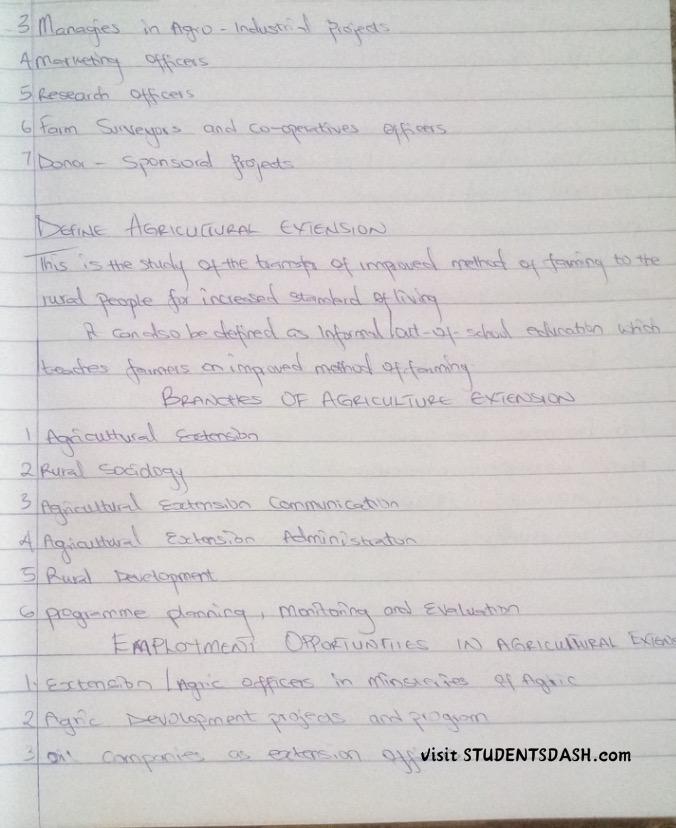 3 Managies in Agro - Industrial projects
4 Marketing officers
5 Research officers
6 Farm Surveyors and co-operatives officers
7 Donor - Sponsord projects
DEFINE AGRICULTURAL EXTENSION
This is the study of the transfer of improved method of farming to the
rural people for increased standard of living
It can also be defined as Informal/out-of-school education which
teaches farmers on improved method of farming
BRANCHES OF AGRICULTURE EXTENSION
1 Agricultural Extension
2 Rural Sociology
3 Agricultural Extension Communication
4 Agricultural Extension Administration
5 Rural Development
6 programme planning, monitoring and Evaluation
EMPLOYMENT OPPORTUNITIES IN AGRICULTURAL EXTENS
1. Extension/Agric officers in ministeries of Agric
2 Agric Development projects and program
3 oil companies as extension off
visit STUDENTSDASH.com